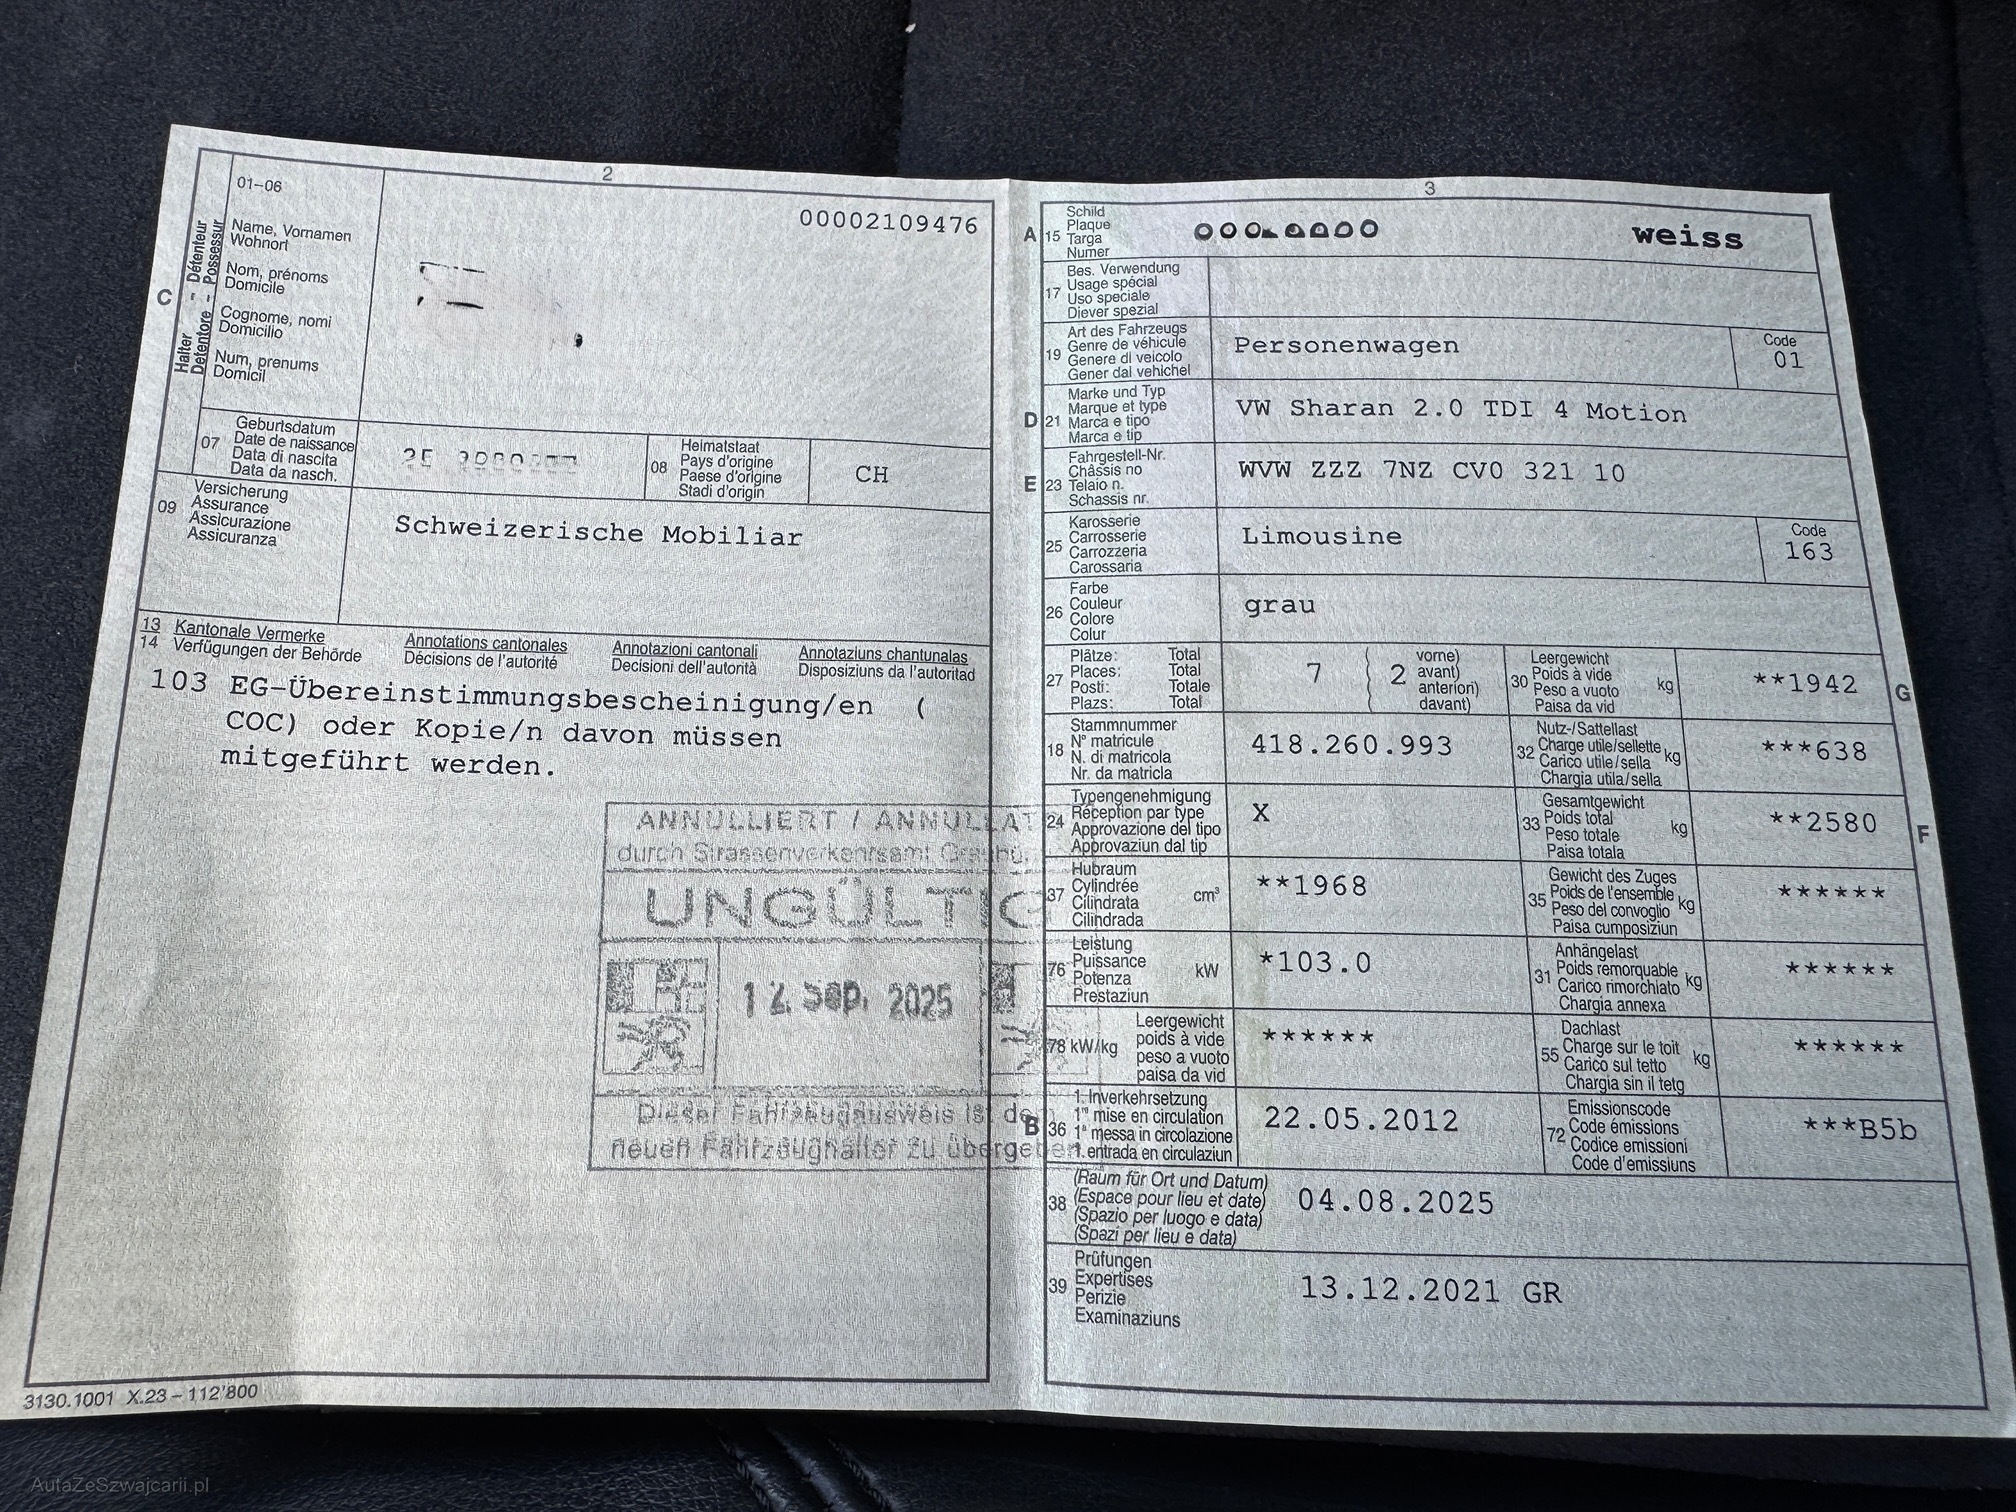 2
01–06
00002109476
C
Halter – Détenteur
Detentore – Possessur
Name, Vornamen
Wohnort
Nom, prénoms
Domicile
Cognome, nomi
Domicilio
Num, prenums
Domicil
07
Geburtsdatum
Date de naissance
Data di nascita
Data da nasch.
08
Heimatstaat
Pays d'origine
Paese d'origine
Stadi d'origin
CH
09
Versicherung
Assurance
Assicurazione
Assicuranza
Schweizerische Mobiliar
13 Kantonale Vermerke Annotations cantonales Annotazioni cantonali Annotaziuns chantunalas
14 Verfügungen der Behörde Décisions de l'autorité Decisioni dell'autorità Disposiziuns da l'autoritad
103 EG-Übereinstimmungsbescheinigung/en (
COC) oder Kopie/n davon müssen
mitgeführt werden.
ANNULLIERT / ANNULLAT
durch Strassenverkehrsamt
UNGÜLTIG
12. Sep. 2025
Dieser Fahrzeugausweis ist dem
neuen Fahrzeughalter zu übergeben
3130.1001 X.23 – 112'800
3
A 15
Schild
Plaque
Targa
Numer
weiss
17
Bes. Verwendung
Usage spécial
Uso speciale
Diever spezial
19
Art des Fahrzeugs
Genre de véhicule
Genere di veicolo
Gener dal vehichel
Personenwagen
Code
01
D 21
Marke und Typ
Marque et type
Marca e tipo
Marca e tip
VW Sharan 2.0 TDI 4 Motion
E 23
Fahrgestell-Nr.
Châssis no
Telaio n.
Schassis nr.
WVW ZZZ 7NZ CV0 321 10
25
Karosserie
Carrosserie
Carrozzeria
Carossaria
Limousine
Code
163
26
Farbe
Couleur
Colore
Colur
grau
27
Plätze: Total
Places: Total
Posti: Totale
Plazs: Total
7
2
vorne)
avant)
anteriori)
davant)
30
Leergewicht
Poids à vide
Peso a vuoto
Paisa da vid
kg
**1942
G
18
Stammnummer
N° matricule
N. di matricola
Nr. da matricla
418.260.993
32
Nutz-/Sattellast
Charge utile/sellette
Carico utile/sella
Chargia utila/sella
kg
***638
24
Typengenehmigung
Réception par type
Approvazione del tipo
Approvaziun dal tip
X
33
Gesamtgewicht
Poids total
Peso totale
Paisa totala
kg
**2580
F
37
Hubraum
Cylindrée
Cilindrata
Cilindrada
cm³
**1968
35
Gewicht des Zuges
Poids de l'ensemble
Peso del convoglio
Paisa cumposiziun
kg
******
76
Leistung
Puissance
Potenza
Prestaziun
kW
*103.0
31
Anhängelast
Poids remorquable
Carico rimorchiato
Chargia annexa
kg
******
78 kW/kg
Leergewicht
poids à vide
peso a vuoto
paisa da vid
******
55
Dachlast
Charge sur le toit
Carico sul tetto
Chargia sin il tetg
kg
******
B 36
1. Inverkehrsetzung
1re mise en circulation
1a messa in circolazione
1. entrada en circulaziun
22.05.2012
72
Emissionscode
Code émissions
Codice emissioni
Code d'emissiuns
***B5b
38
(Raum für Ort und Datum)
(Espace pour lieu et date)
(Spazio per luogo e data)
(Spazi per lieu e data)
04.08.2025
39
Prüfungen
Expertises
Perizie
Examinaziuns
13.12.2021 GR
AutaZeSzwajcarii.pl